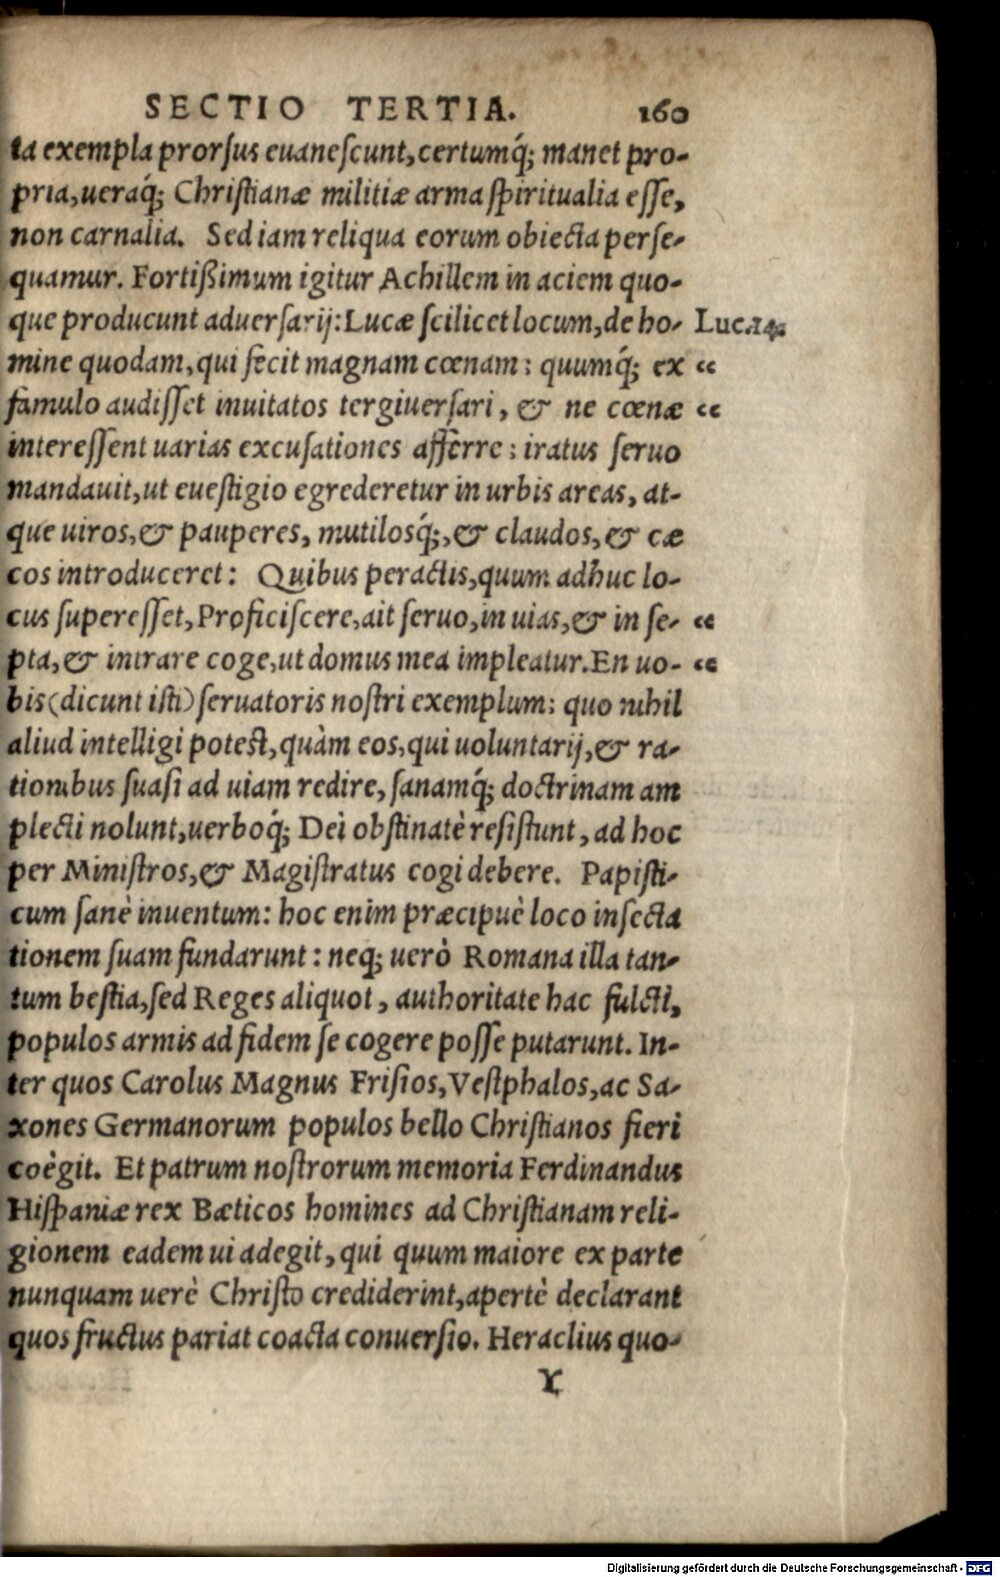 SECTIO TERTIA. 160
ta exempla prorſus euaneſcunt, certumq́; manet pro-
pria, ueraq́; Chriſtianæ militiæ arma ſpiritualia eſſe,
non carnalia. Sed iam reliqua eorum obiecta perſe-
quamur. Fortißimum igitur Achillem in aciem quo-
que producunt aduerſarij: Lucæ ſcilicet locum, de ho- Luc.14.
mine quodam, qui fecit magnam cœnam: quumq́; ex “
famulo audiſſet inuitatos tergiuerſari, & ne cœnæ “
intereſſent uarias excuſationes afferre: iratus ſeruo
mandauit, ut eueſtigio egrederetur in urbis areas, at-
que uiros, & pauperes, mutilosq́;, & claudos, & cæ
cos introduceret: Quibus peractis, quum adhuc lo-
cus ſupereſſet, Proficiſcere, ait ſeruo, in uias, & in ſe- “
pta, & intrare coge, ut domus mea impleatur. En uo- “
bis (dicunt iſti) ſeruatoris noſtri exemplum: quo nihil
aliud intelligi poteſt, quàm eos, qui uoluntarij, & ra-
tionibus ſuaſi ad uiam redire, ſanamq́; doctrinam am
plecti nolunt, uerboq́; Dei obſtinatè reſiſtunt, ad hoc
per Miniſtros, & Magiſtratus cogi debere. Papiſti-
cum ſanè inuentum: hoc enim præcipuè loco inſecta
tionem ſuam fundarunt: neq; uerò Romana illa tan-
tum beſtia, ſed Reges aliquot, authoritate hac fulcti,
populos armis ad fidem ſe cogere poſſe putarunt. In-
ter quos Carolus Magnus Friſios, Veſtphalos, ac Sa-
xones Germanorum populos bello Chriſtianos fieri
coègit. Et patrum noſtrorum memoria Ferdinandus
Hiſpaniæ rex Bæticos homines ad Chriſtianam reli-
gionem eadem ui adegit, qui quum maiore ex parte
nunquam uerè Chriſto crediderint, apertè declarant
quos fructus pariat coacta conuerſio. Heraclius quo-
Y
Digitalisierung gefördert durch die Deutsche Forschungsgemeinschaft - DFG